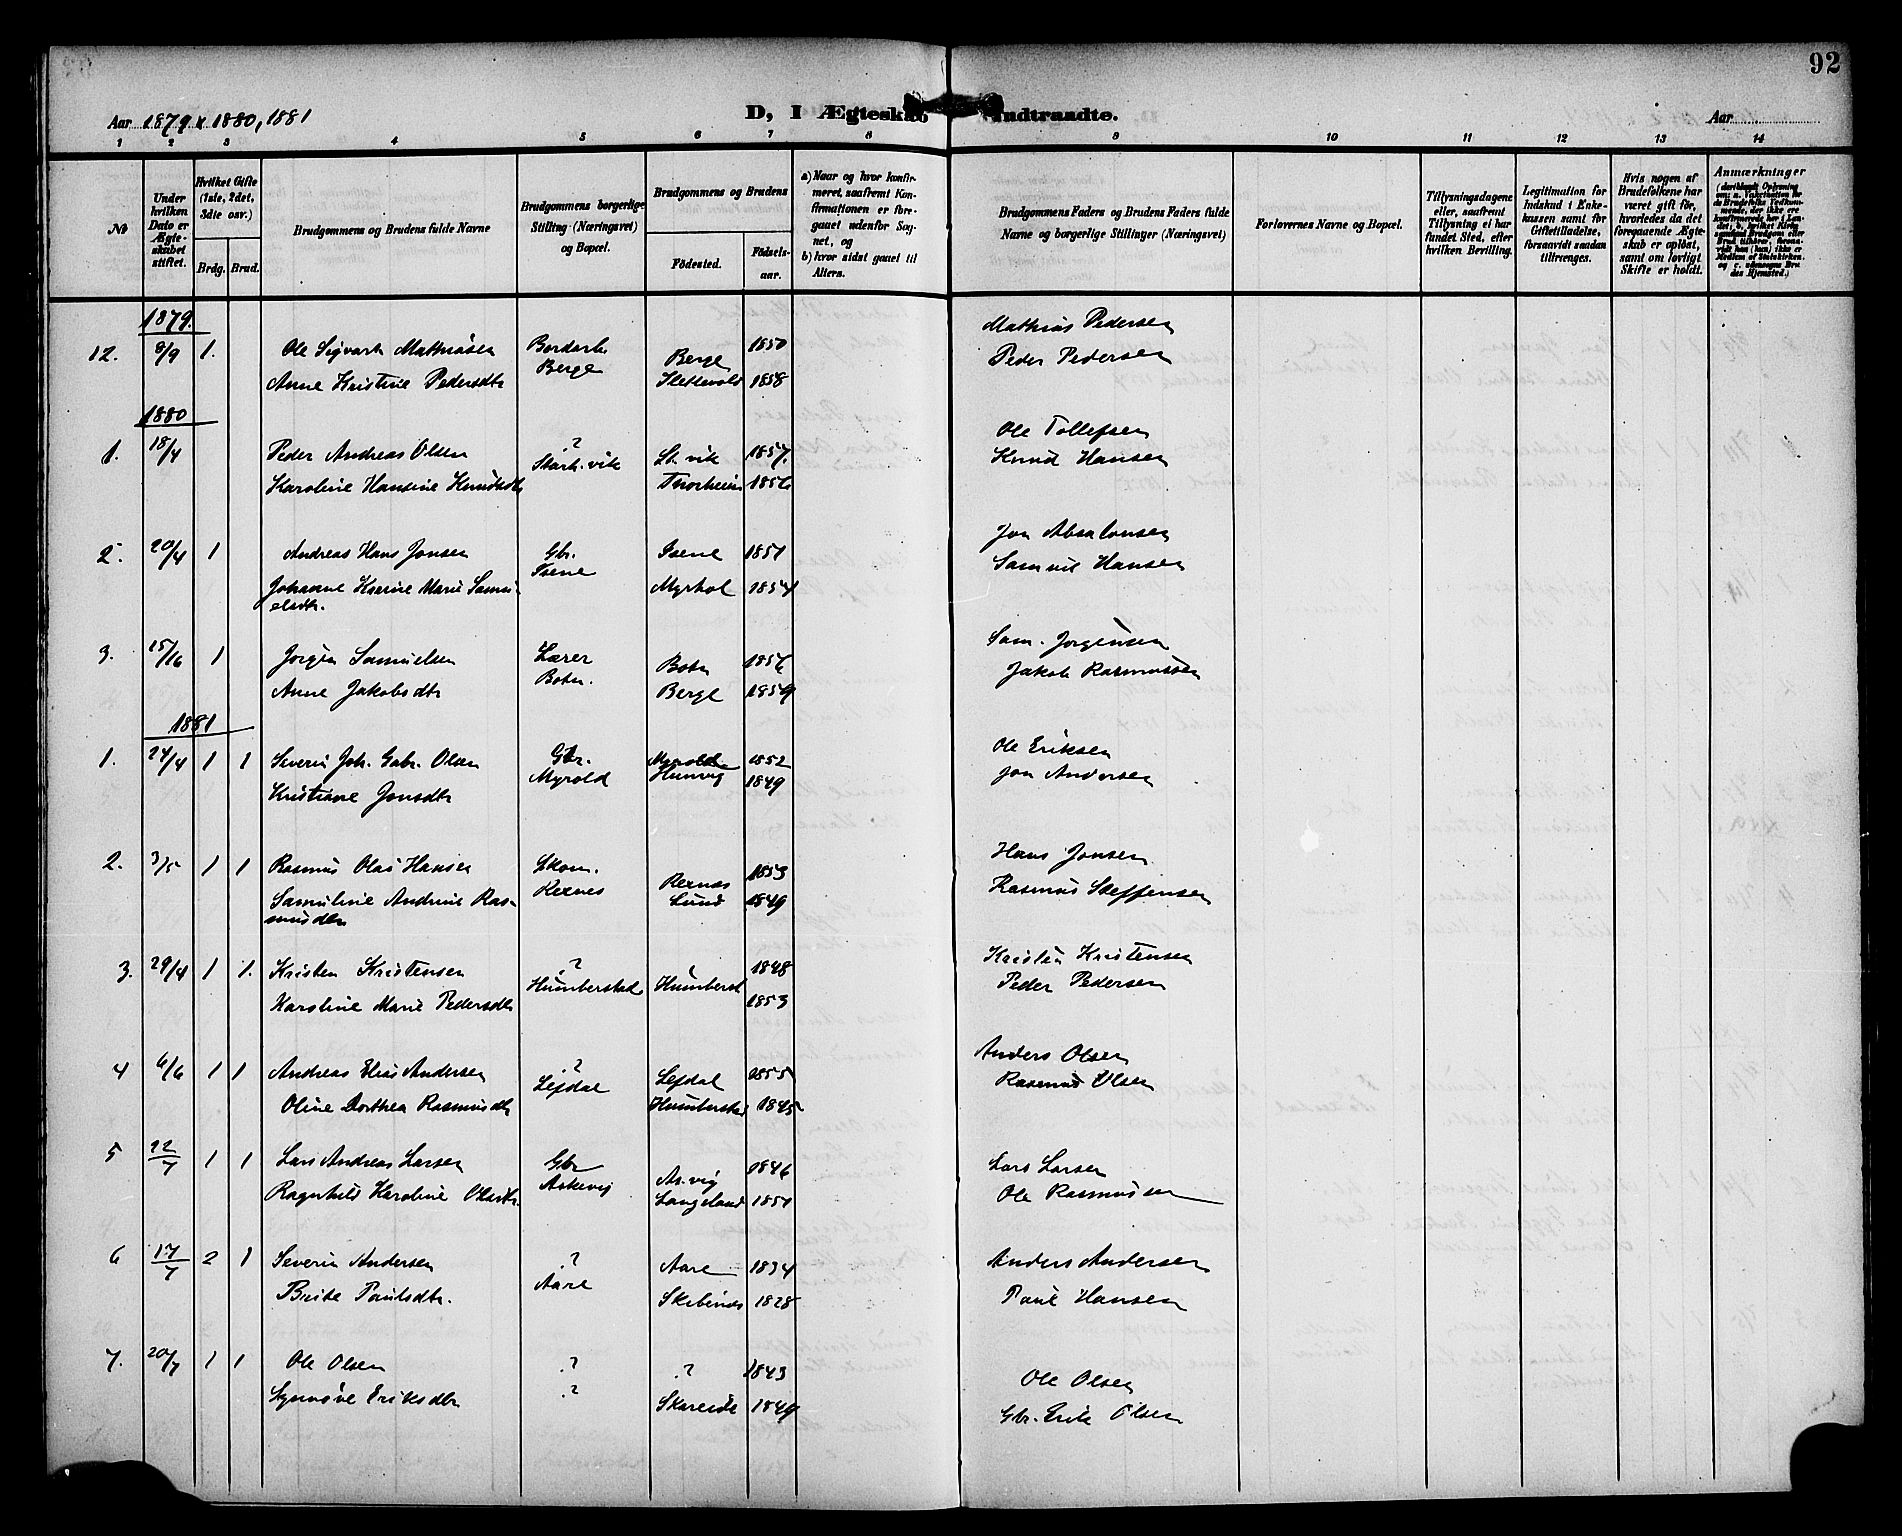 92
Aar 1879, 1880, 1881
D, I Ægteskab Indtraadte.
Aar
1 2 3 4 5 6 7 8 9 10 11 12 13 14
No
Under hvilken Dato er Ægteskabet stiftet.
Hvilket Gifte (1ste, 2det, 3die osv.)
Brdg. Brud.
Brudgommens og Brudens fulde Navne
Brudgommens borgerlige Stilling (Næringsvei) og Bopæl.
Brudgommens og Brudens
Fødested.
Fødselsaar.
a) Naar og hvor konfirmeret, saafremt Konfirmationen er foregaaet udenfor Sognet, og
b) hvor sidst gaaet til Alters.
Brudgommens Faders og Brudens Faders fulde Navne og borgerlige Stillinger (Næringsvei)
Forlovernes Navne og Bopæl.
Tillysningsdagene eller, saafremt Tillysning ei har fundet Sted, efter hvilken Bevilling.
Legitimation for Indskud i Enkekassen samt for Giftetilladelse, forsaavidt saadan tiltrænges.
Hvis nogen af Brudefolkene har været gift før, hvorledes da det foregaaende Ægteskab er opløst, samt om lovligt Skifte er holdt.
Anmærkninger
1879.
12. 8/9 1. Ole Sigvart Mathiasen Bordarb. Berge Berge 1850 Mathias Pedersen
Anne Kristine Pedersdtr Slettevold 1858 Peder Pedersen
1880
1. 18/4 Peder Andreas Olsen ? Stark.vik St. vik 1857. Ole Tollefsen
Karoline Hansine Knudsdtr Thorheim 1856 Knud Hansen
2. 20/4 1 Andreas Hans Jonsen Gbr. Isene Isene 1851 Jon Absalonsen
Johanne Karine Marie Samuelsdtr. Myrhol 1854 Samuel Hansen
3. 15/16 1 Jørgen Samuelsen Lærer Botn. Botn 1856 Sam. Jørgensen
Anne Jakobsdtr Berge 1859 Jakob Rasmussen
1881
1. 24/4 1 1 Severin Joh. Gabr. Olsen Gbr. Myrold Myrold 1852 Ole Eriksen
Kristiane Jonsdtr Hunvig 1849 Jon Andersen
2. 3/5 1 1 Rasmus Olai Hansen Skom. Rexnes Rexnes 1853 Hans Jonsen
Samuline Andrine Rasmusdtr Lund 1849 Rasmus Steffensen
3. 29/4 1 1. Kristen Kristensen ? Humberstad Humberst 1848 Kristen Kristensen
Karoline Marie Pedersdtr 1853 Peder Pedersen
4 6/6 1 1 Andreas Elias Andersen ? Lejdal Lejdal 1855 Anders Olsen
Oline Dorthea Rasmusdtr Humberstad 1845 Rasmus Olsen
5 22/7 1 1 Lars Andreas Larsen Gbr Askevig As.vig 1846 Lars Larsen
Ragnhild Karoline Olsdtr. Langeland 1851 Ole Rasmussen
6 17/7 2 1 Severin Andersen ? Aare Aare 1834 Anders Andersen
Brite Paulsdtr. Skibenes 1828 Paul Hansen
7. 20/7 1 1 Ole Olsen ? ? 1843 Ole Olsen
Synnøve Eriksdtr ? Skareide 1849 Gbr. Erik Olsen